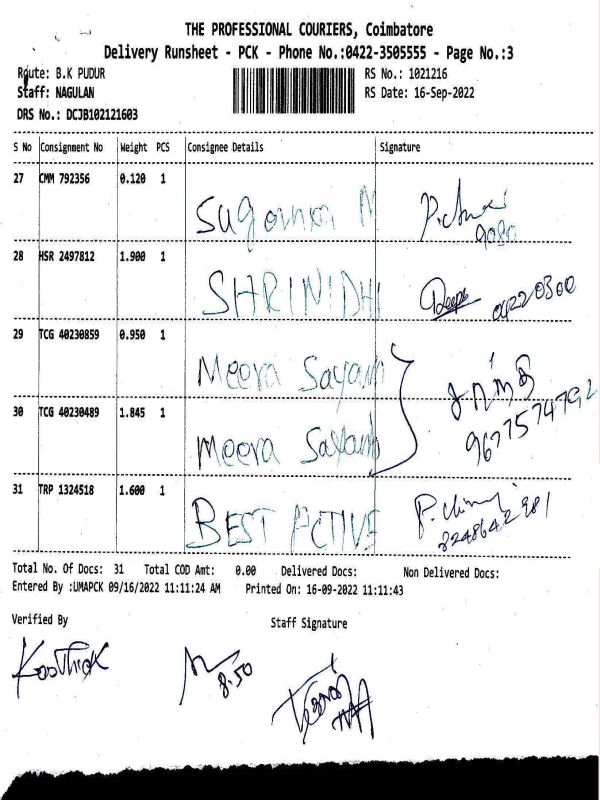 THE PROFESSIONAL COURIERS, Coimbatore
Delivery Runsheet - PCK - Phone No.:0422-3505555 - Page No.:3
Route: B.K PUDUR RS No.: 1021216
Staff: NAGULAN RS Date: 16-Sep-2022
DRS No.: DCJB102121603
S No Consignment No Weight PCS Consignee Details Signature
27 CMM 792356 0.120 1
9080
28 HSR 2497812 1.900 1 SHRINIDHI Deepa
29 TCG 40230859 0.950 1 Meera
30 TCG 40230489 1.845 1 Meera
31 TRP 1324518 1.600 1 BEST ACTIVE
Total No. Of Docs: 31 Total COD Amt: 0.00 Delivered Docs: Non Delivered Docs:
Entered By :UMAPCK 09/16/2022 11:11:24 AM Printed On: 16-09-2022 11:11:43
Verified By Staff Signature
8.50